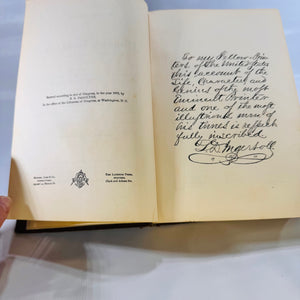 Entered according to Act of Congress, in the year 1873, by
In the office of the Librarian of Congress, at Washington, D. C.
THE LAKESIDE PRESS,
To my fellow Prin-
ters of the United States
this account of the
Life, Character and
Genius of the most
Eminent Printer
and one of the most
illustrious men of
his times is respect-
fully inscribed
L. D. Ingersoll